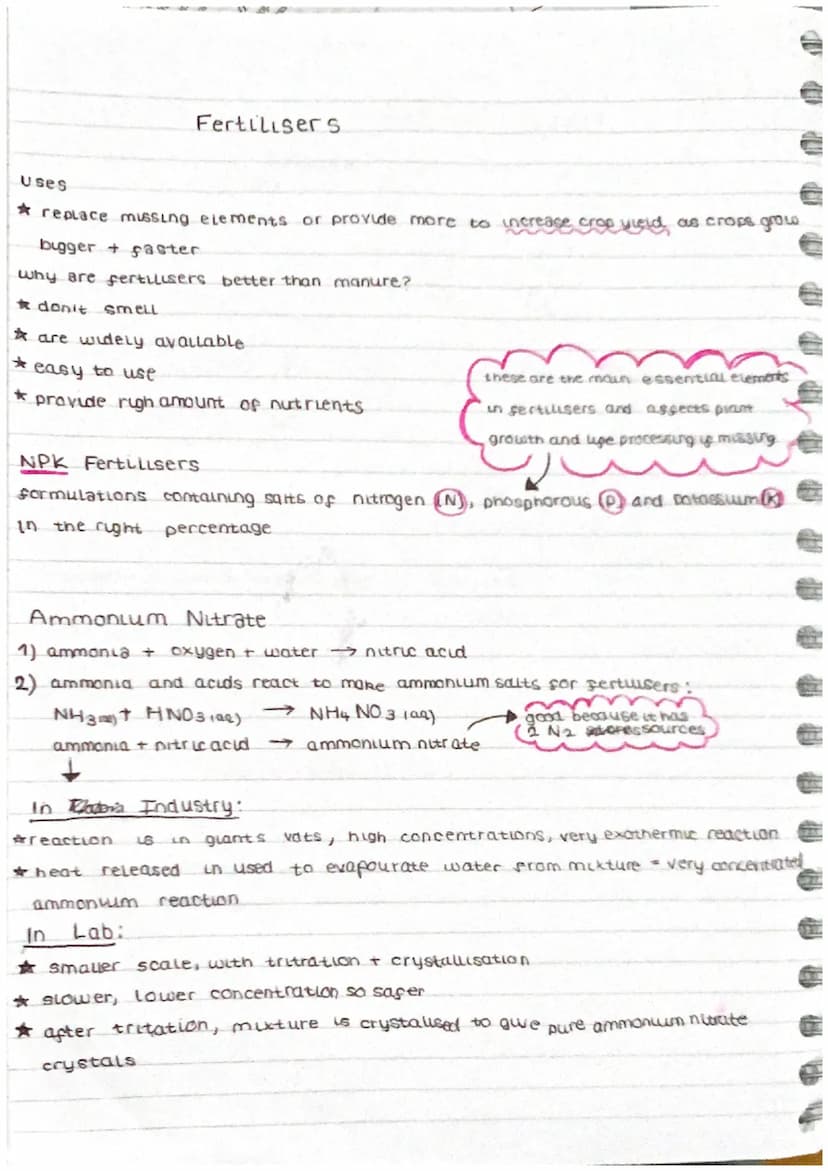 Fertilisers
uses
★ replace missing elements or provide more to increase crop yield, as crops grow
bigger + faster
why are fertilisers better than manure?
★ don't smell
★ are widely available
★ easy to use
★ provide righ amount of nutrients
these are the main essential elements
in fertilisers and affects plant
growth and life processing if missing
NPK Fertilisers
formulations containing salts of nitrogen (N), phosphorous (P) and potassium (K)
in the right percentage
Ammonium Nitrate
1) ammonia + oxygen + water → nitric acid
2) ammonia and acids react to make ammonium salts for fertilisers:
NH3 + HNO3 (aq) → NH4 NO3 (aq)
good because it has
2 N2 sources
ammonia + nitric acid → ammonium nitrate
In Industry:
★ reaction is in giants vats, high concentrations, very exothermic reaction
★ heat released in used to evapourate water from mixture = very concentrated
ammonium reaction
In Lab:
★ smaller scale, with tritration + crystallisation
★ slower, lower concentration so safer
★ after tritation, mixture is crystalised to give pure ammonium nitrate
crystals